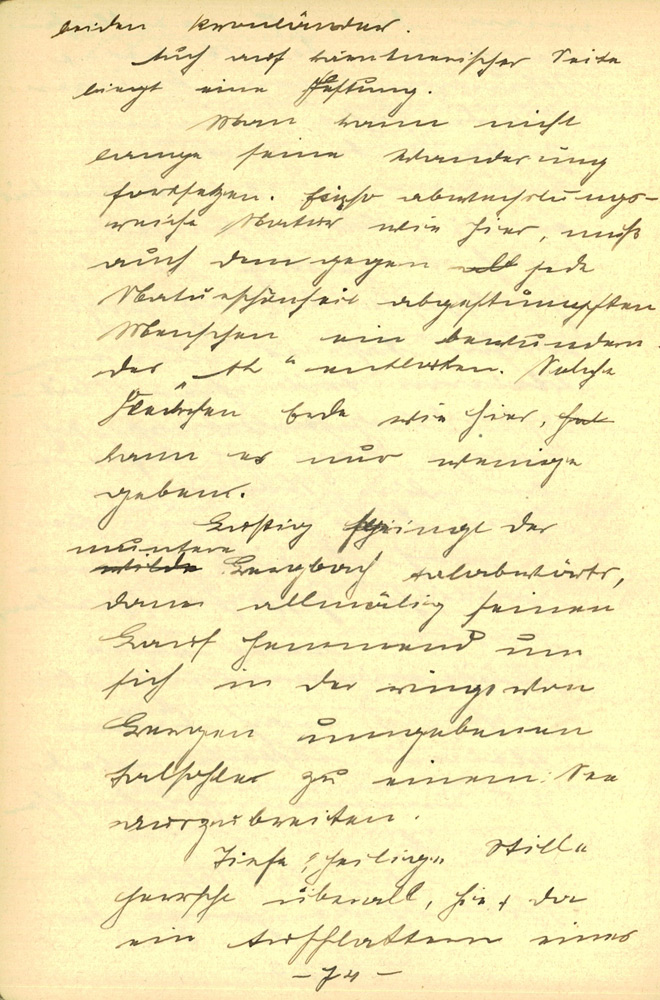 beiden Kronländer.
Auch auf kärntnerischer Seite
liegt eine Festung.
Man kann nicht
lange seine Wanderung
fortsetzen. Eine so abwechslungs-
reiche Natur wie hier, muß
auch dem gegen all jede
Naturschönheit abgestumpften
Menschen ein bewundern-
des Ah" entlocken. Solche
Fleckchen Erde wie hier, hat
kann es nur wenige
geben.
Lustig springt der
muntere
wilde Bergbach talabwärts,
dann allmälig seinen
Lauf hemmend um
sich in der rings von
Bergen umgebenen
Talsohle zu einem See
auszubreiten.
Tiefe, heilige Stille
herrscht überall, hie + da
ein Aufflattern eines
- 74 -